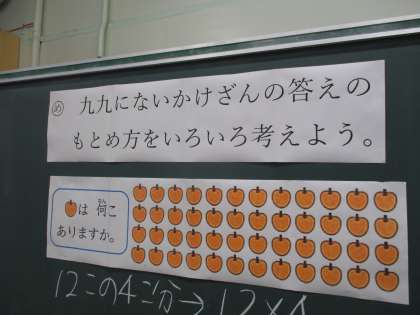 め 九九にないかけざんの答えの
もとめ方をいろいろ考えよう。
は 何こ
ありますか。
12この4こ分→12×4